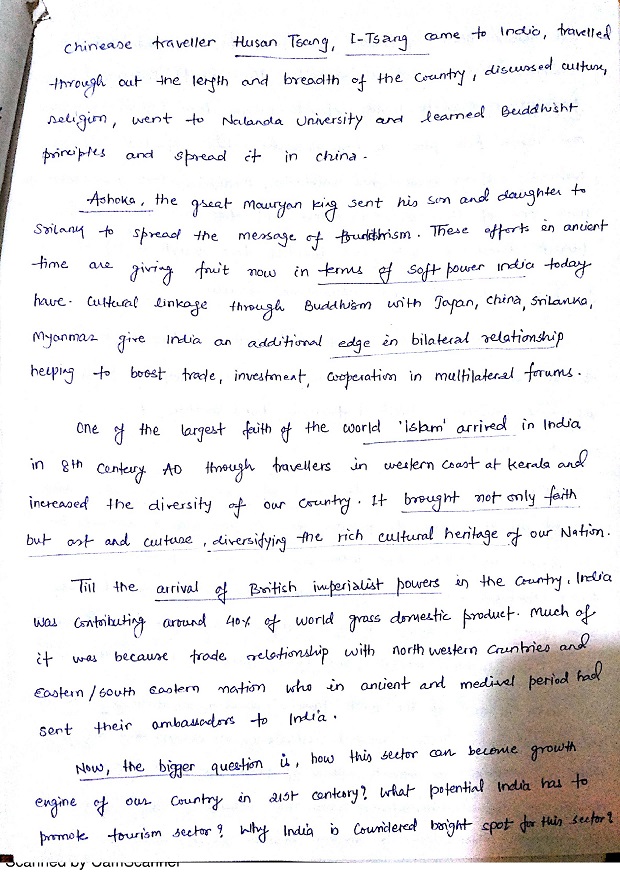 Chinease traveller Husan Tsang, I-Tsang came to India, travelled
through out the length and breadth of the country, discussed culture,
religion, went to Nalanda University and learned Buddhisht
principles and spread it in china.
Ashoka, the great Mauryan king sent his son and daughter to
Srilanka to spread the message of Buddhism. These efforts in ancient
time are giving fruit now in terms of soft power India today
have. Cultural linkage through Buddhism with Japan, China, Srilanka,
Myanmar give India an additional edge in bilateral relationship
helping to boost trade, investment, cooperation in multilateral forums.
One of the largest faith of the world 'islam' arrived in India
in 8th Century AD through travellers in western coast at Kerala and
increased the diversity of our country. It brought not only faith
but art and culture, diversifying the rich cultural heritage of our Nation.
Till the arrival of British imperialist powers in the country, India
was contributing around 40% of world gross domestic product. Much of
it was because trade relationship with north western countries and
Eastern/south Eastern nation who in ancient and medival period had
sent their ambassadors to India.
Now, the bigger question is, how this sector can become growth
engine of our country in 21st century? What potential India has to
promote tourism sector? Why India is considered bright spot for this sector?
Scanned by CamScanner